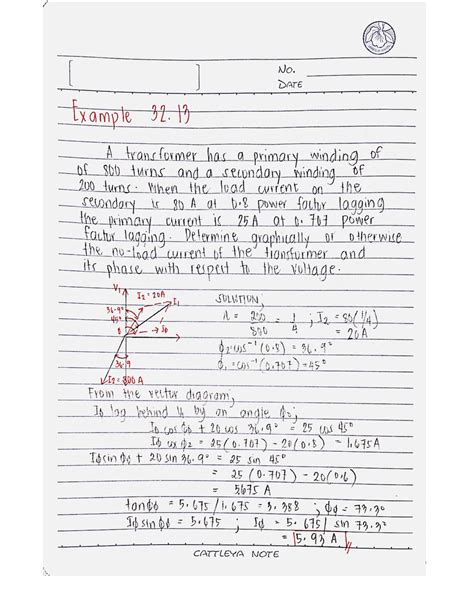 No.
DATE
Example 32.13
A transformer has a primary winding of
of 800 turns and a secondary winding of
200 turns. When the load current on the
secondary is 80 A at 0.8 power factor lagging
the primary current is 25A at 0.707 power
factor lagging. Determine graphically or otherwise
the no-load current of the transformer and
its phase with respect to the voltage.
V1
I2' = 20A
I1
36.9°
45°
θ
→ Iϕ
SOLUTION,
K = 200/800 = 1/4 ; I2 = 80(1/4)
= 20A
ϕ2 = cos⁻¹ (0.8) = 36.9°
ϕ1 = cos⁻¹ (0.707) = 45°
36.9
I2 = 800 A
From the vector diagram,
I0 lag behind V1 by an angle ϕ0;
I0 cos ϕ0 + 20 cos 36.9° = 25 cos 45°
I0 cos ϕ2 = 25 (0.707) - 20 (0.8) = 1.675A
I0 sin ϕ0 + 20 sin 36.9° = 25 sin 45°
= 25 (0.707) - 20(0.6)
= 5675 A
tan ϕ0 = 5.675 / 1.675 = 3.388 ; ϕ0 = 73.3°
I0 sin ϕ0 = 5.675 ; I0 = 5.675 / sin 73.3°
= 5.93 A
CATTLEYA NOTE